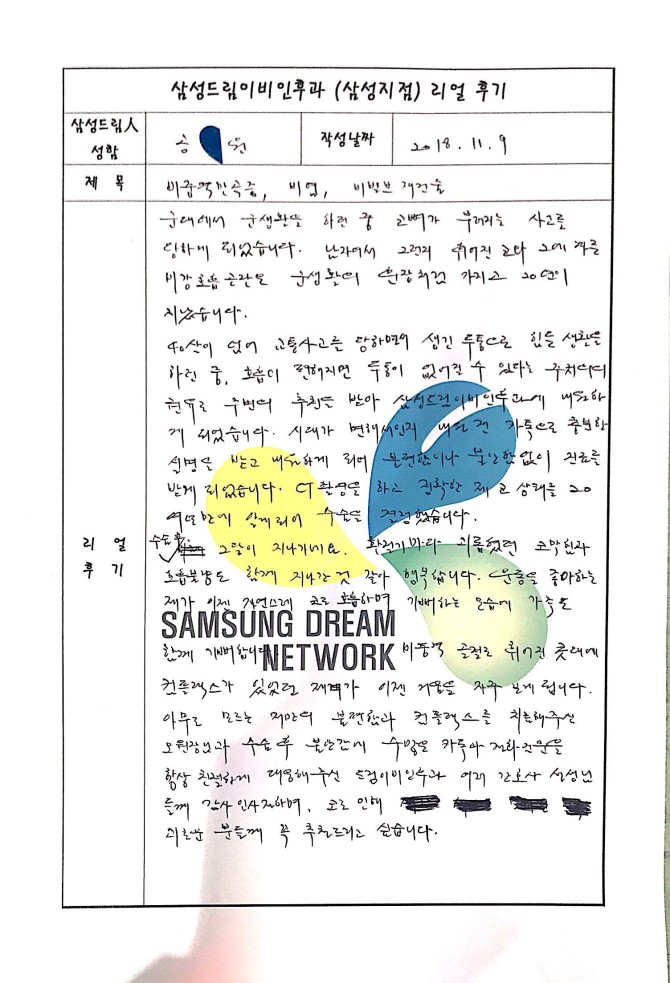 삼성드림이비인후과 (삼성지점) 리얼 후기
삼성드림人
성함
송 원
작성날짜
2018.11.9
제 목
비중격만곡증, 비염, 비밸브 재건술
군대에서 군생활을 하던 중 코뼈가 부러지는 사고를
당하게 되었습니다. 휘어진 코와 그에 따른
비강호흡곤란도 군생활의 가지고 20년이
지났습니다.
40살이 넘어 교통사고를 당하면서 생긴 두통으로 힘든 생활을
하던 중, 호흡이 편해지면 두통이 없어질 수 있다는 주치의의
권유로 주변의 추천을 받아 삼성드림이비인후과에 내원하
게 되었습니다. 시대가 변해서인지 내원 전 카톡으로 충분한
설명을 받고 내원하게 되어 불편함이나 불안함없이 진료를
받게 되었습니다. CT촬영을 하고 정확한 제 코 상태를 20
여년만에 알게되어 수술을 결정했습니다.
리 얼
후 기
수술후
그달이 지나가네요. 환절기마다 괴롭혔던 코막힘과
호흡불량도 함께 지나간 것 같아 행복합니다. 운동을 좋아하는
제가 이젠 자연스레 코로 호흡하며 기뻐하는 모습에 가족도
SAMSUNG DREAM
함께 기뻐합니다. 비중격 골절로 휘어진 콧대에
NETWORK
컴플렉스가 있었던 제가 이젠 거울을 자주 보게 됩니다.
아무도 모르는 저만의 불편함과 컴플렉스를 치료해주신
오원장님과 수술 후 불안감에 수많은 카톡과 전화문의를
항상 친절하게 대응해주신 드림이비인후과 여러 간호사 선생님
들께 감사인사전하며, 코로 인해
괴로운 분들께 꼭 추천드리고 싶습니다.